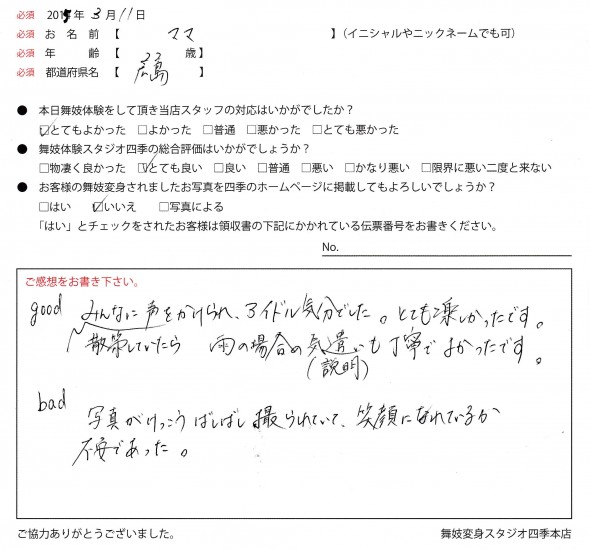 必須 2015年 3月11日
必須 お名前【 ママ 】（イニシャルやニックネームでも可）
必須 年 齢【 33 歳】
必須 都道府県名【 広島 】
● 本日舞妓体験をして頂き当店スタッフの対応はいかがでしたか？
☑とてもよかった □よかった □普通 □悪かった □とても悪かった
● 舞妓体験スタジオ四季の総合評価はいかがでしょうか？
□物凄く良かった ☑とても良い □良い □普通 □悪い □かなり悪い □限界に悪い二度と来ない
● お客様の舞妓変身されましたお写真を四季のホームページに掲載してもよろしいでしょうか？
□はい ☑いいえ □写真による
「はい」とチェックをされたお客様は領収書の下記にかかれている伝票番号をお書きください。
No.
ご感想をお書き下さい。
good みんなに声をかけられ、アイドル気分でした。とても楽しかったです。
散策していたら 雨の場合の気遣いも丁寧でよかったです。
(説明)
bad
写真がけっこうばしばし撮られていて、笑顔になれているか
不安であった。
ご協力ありがとうございました。 舞妓変身スタジオ四季本店